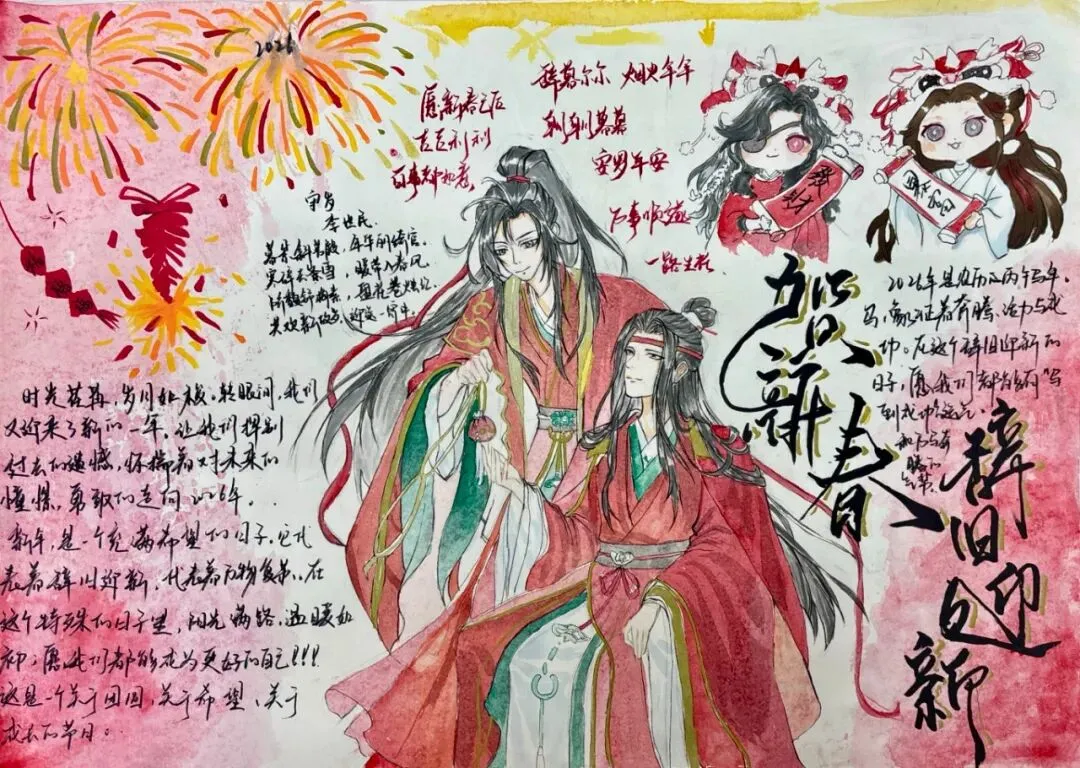 2026
愿新春之后
吉吉利利
百事都如意
辞暮尔尔 烟火年年
朝朝暮暮
岁岁年安
万事顺遂
一路生花
守岁
李世民
暮景斜芳殿，年华丽绮宫。
寒辞去冬雪，暖带入春风。
阶馥舒梅素，盘花卷烛红。
共欢新故岁，迎送一宵中。
贺新春
2026年是农历的丙午马年。
马，象征着奔腾、活力与成
功。在这个辞旧迎新的
日子，愿我们都能有"马
到成功"的运气，
辞旧迎新
时光荏苒，岁月如梭。转眼间，我们
又迎来了新的一年，让我们挥别
过去的遗憾，怀揣着对未来的
憧憬，勇敢的走向2026年。..
新年，是一个充满希望的日子，它代
表着辞旧迎新，代表着万物复苏。在
这个特殊的日子里，阳光满路，温暖如
初；愿我们都能成为更好的自己!!!
这是一个关于团圆、关于希望、关于
成长的节日。